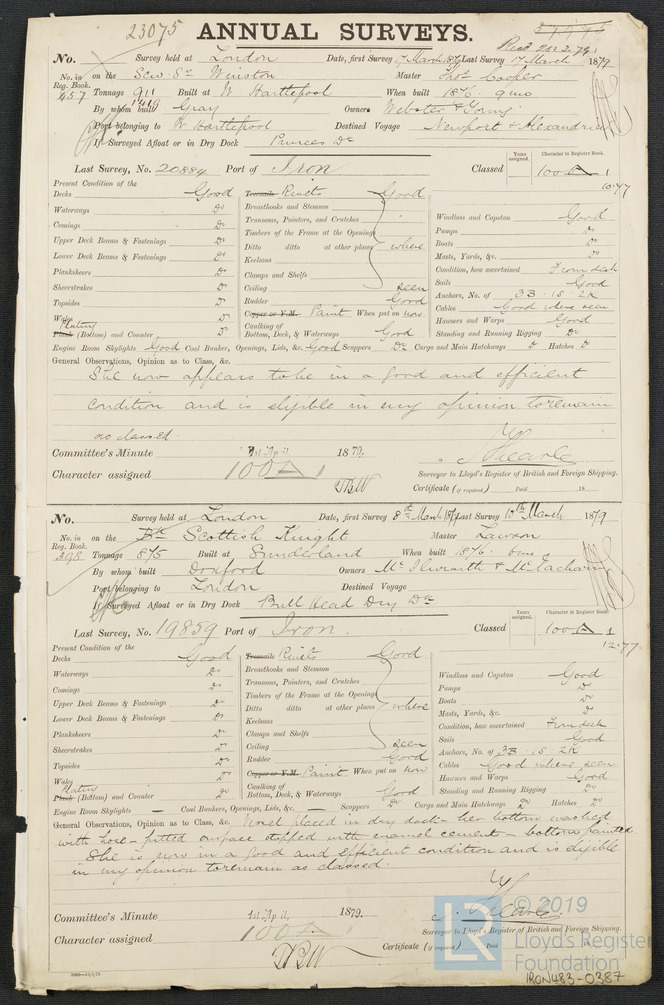 23075
ANNUAL SURVEYS.
Recd 20.3.79
No. Survey held at London Date, first Survey 7 March 1879 Last Survey 17 March 1879
No. in Reg. Book. 457 on the Scw Sr Winston Master Thos Cooper
Tonnage 911 1419 Built at W Hartlepool When built 1876. 9mo
By whom built Gray Owners Webster &
Port belonging to W Hartlepool Destined Voyage Newport & Alexandria
If Surveyed Afloat or in Dry Dock Princes Dk
Last Survey, No. 20884 Port of Iron Classed
Years assigned. Character in Register Book.
100 A 1
10.77
Present Condition of the
Decks Good
Waterways Do
Comings Do
Upper Deck Beams & Fastenings Do
Lower Deck Beams & Fastenings Do
Planksheers Do
Sheerstrakes Do
Topsides Do
Wales Do
Plating
Plank (Bottom) and Counter Do
Treenails Rivets Good
Breasthooks and Stemson
Transoms, Pointers, and Crutches
Timbers of the Frame at the Openings
Ditto ditto at other places where
Keelsons
Clamps and Shelfs
Ceiling seen
Rudder Good
Copper or Y.M. Paint When put on now
Caulking of Bottom, Deck, & Waterways Good
Windlass and Capstan Good
Pumps Do
Boats Do
Masts, Yards, &c. Do
Condition, how ascertained From deck
Sails Good
Anchors, No. of 3B. 1S. 2K
Cables Good where seen
Hawsers and Warps Good
Standing and Running Rigging Do
Engine Room Skylights Good Coal Bunker, Openings, Lids, &c. Good Scuppers Do Cargo and Main Hatchways Do Hatches Do
General Observations, Opinion as to Class, &c.
She now appears to be in a good and efficient
condition and is eligible in my opinion to remain
as classed.
Committee's Minute 1st April 1879.
Character assigned 100 A 1
Surveyor to Lloyd's Register of British and Foreign Shipping.
Certificate (if required) Paid 18
No. Survey held at London Date, first Survey 8th March 1879 Last Survey 10th March 1879
No. in Reg. Book. 398 on the Bk Scottish Knight Master Lawson
Tonnage 875 Built at Sunderland When built 1876. 6mo
By whom built Doxford Owners McIlwraith & McEacharn
Port belonging to London Destined Voyage
If Surveyed Afloat or in Dry Dock Bull Head Dry Dk
Last Survey, No. 19859 Port of Iron. Classed
Years assigned. Character in Register Book.
100 A 1
12.77.
Present Condition of the
Decks Good
Waterways Do
Comings Do
Upper Deck Beams & Fastenings Do
Lower Deck Beams & Fastenings Do
Planksheers Do
Sheerstrakes Do
Topsides Do
Wales Do
Plating
Plank (Bottom) and Counter Do
Treenails Rivets Good
Breasthooks and Stemson
Transoms, Pointers, and Crutches
Timbers of the Frame at the Openings
Ditto ditto at other places where
Keelsons
Clamps and Shelfs
Ceiling seen
Rudder Good
Copper or Y.M. Paint When put on now
Caulking of Bottom, Deck, & Waterways Good
Windlass and Capstan Good
Pumps Do
Boats Do
Masts, Yards, &c. Do
Condition, how ascertained From deck
Sails Good
Anchors, No. of 3B. 1S. 2K
Cables Good where seen
Hawsers and Warps Good
Standing and Running Rigging Do
Engine Room Skylights — Coal Bunkers, Openings, Lids, &c. — Scuppers Do Cargo and Main Hatchways Do Hatches Do
General Observations, Opinion as to Class, &c. Vessel placed in dry dock - her bottom washed
with lime - pitted surface stopped with enamel cement - bottom painted
She is now in a good and efficient condition and is eligible
in my opinion to remain as classed.
Committee's Minute 1st April, 1879.
Character assigned 100 A 1
Surveyor to Lloyd's Register of British and Foreign Shipping.
Certificate (if required) Paid
LR © 2019
Lloyd's Register
Foundation
IRON483-0387